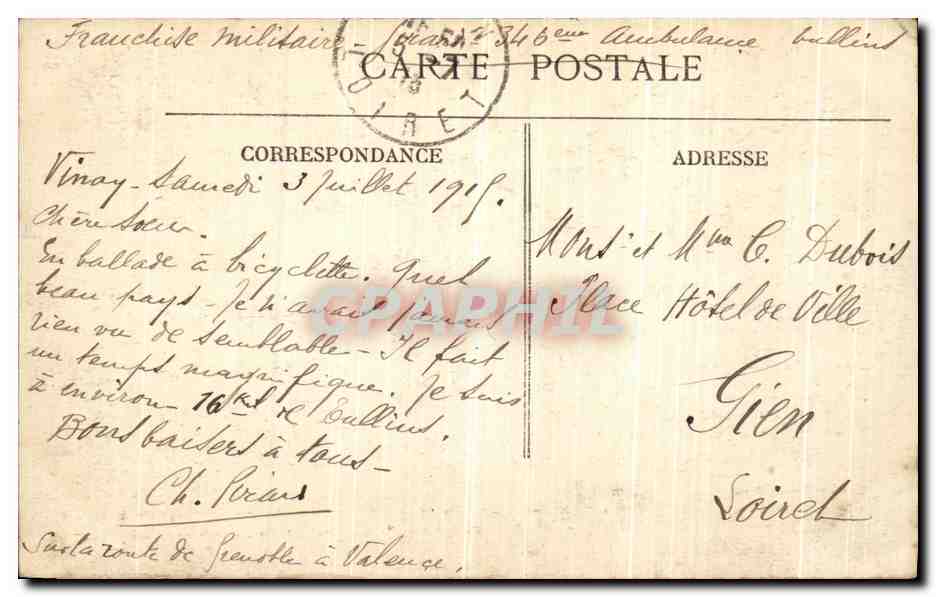 Franchise Militaire 346eme Ambulance Tullins
CARTE POSTALE
LOIRET
CORRESPONDANCE
Vinay - Samedi 3 Juillet 1915.
Chère Sœur.
En ballade à bicyclette. Quel
beau pays - Je n'avais jamais
rien vu de semblable - Il fait
un temps magnifique. Je suis
à environ 16 Kil de Tullins.
Bons baisers à tous -
Ch.
Sur la route de Grenoble à Valence.
ADRESSE
Monsr et Mme C. Dubois
Place Hôtel de Ville
Gien
Loiret
CPAPHIL